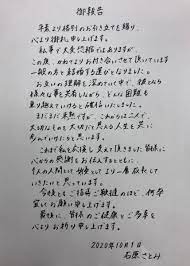 御報告
平素より格別のお引き立てを賜り、
心より御礼申し上げます。
私事で大変恐縮ではありますが、
この度、かねてよりお付き合いさせて頂いています
一般の方と結婚する運びとなりました。
お互いの理解を深めていく中で、この
様々な事を共有しながら、どんな困難も
乗り越えていけると確信いたしました。
まだまだ未熟ですが、これからは二人で、
大切なものを大切にできる人生を共に
歩んでいけたらと思います。
これまで私を応援し支えて頂いています皆様に
心からの感謝をお伝えすると共に、
1人の人間として、役者としてより一層精進して
いきたいと思っています。
今後ともご指導ご鞭撻のほど、何卒
宜しくお願い申し上げます。
最後に、皆様のご健康とご多幸を
心よりお祈り申し上げます。
2020年10月1日
石原さとみ